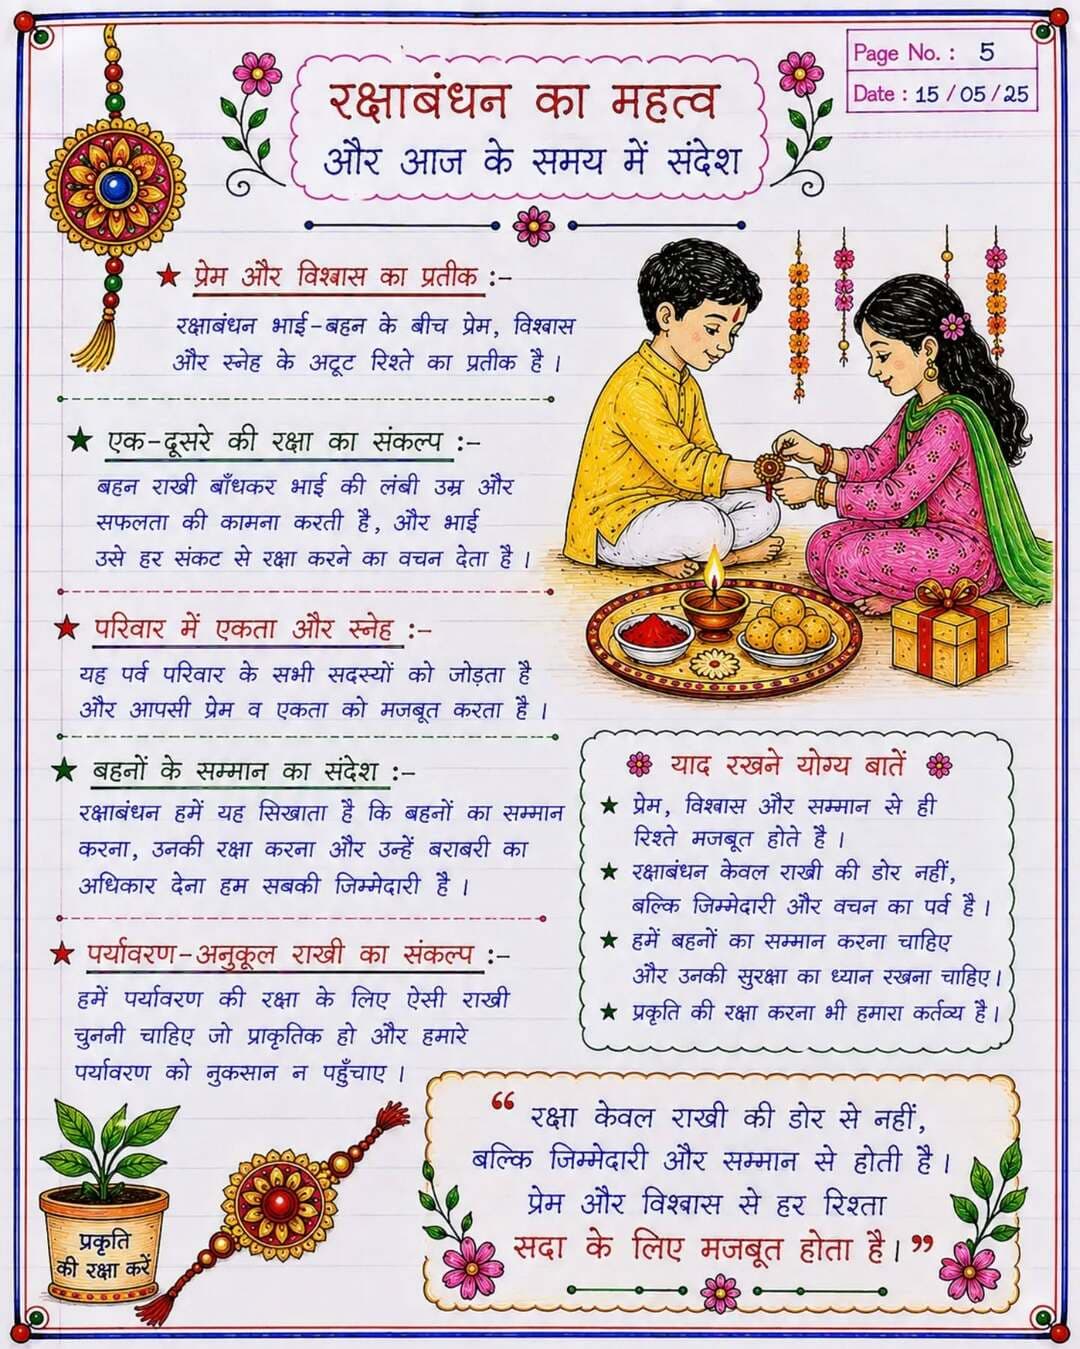 Page No. : 5
Date : 15 / 05 / 25
रक्षाबंधन का महत्व
और आज के समय में संदेश
★ प्रेम और विश्वास का प्रतीक :-
रक्षाबंधन भाई-बहन के बीच प्रेम, विश्वास
और स्नेह के अटूट रिश्ते का प्रतीक है।
★ एक-दूसरे की रक्षा का संकल्प :-
बहन राखी बाँधकर भाई की लंबी उम्र और
सफलता की कामना करती है, और भाई
उसे हर संकट से रक्षा करने का वचन देता है।
★ परिवार में एकता और स्नेह :-
यह पर्व परिवार के सभी सदस्यों को जोड़ता है
और आपसी प्रेम व एकता को मजबूत करता है।
★ बहनों के सम्मान का संदेश :-
रक्षाबंधन हमें यह सिखाता है कि बहनों का सम्मान
करना, उनकी रक्षा करना और उन्हें बराबरी का
अधिकार देना हम सबकी जिम्मेदारी है।
★ पर्यावरण-अनुकूल राखी का संकल्प :-
हमें पर्यावरण की रक्षा के लिए ऐसी राखी
चुननी चाहिए जो प्राकृतिक हो और हमारे
पर्यावरण को नुकसान न पहुँचाए।
याद रखने योग्य बातें
★ प्रेम, विश्वास और सम्मान से ही
रिश्ते मजबूत होते है।
★ रक्षाबंधन केवल राखी की डोर नहीं,
बल्कि जिम्मेदारी और वचन का पर्व है।
★ हमें बहनों का सम्मान करना चाहिए
और उनकी सुरक्षा का ध्यान रखना चाहिए।
★ प्रकृति की रक्षा करना भी हमारा कर्तव्य है।
प्रकृति
की रक्षा करें
“ रक्षा केवल राखी की डोर से नहीं,
बल्कि जिम्मेदारी और सम्मान से होती है।
प्रेम और विश्वास से हर रिश्ता
सदा के लिए मजबूत होता है। ”